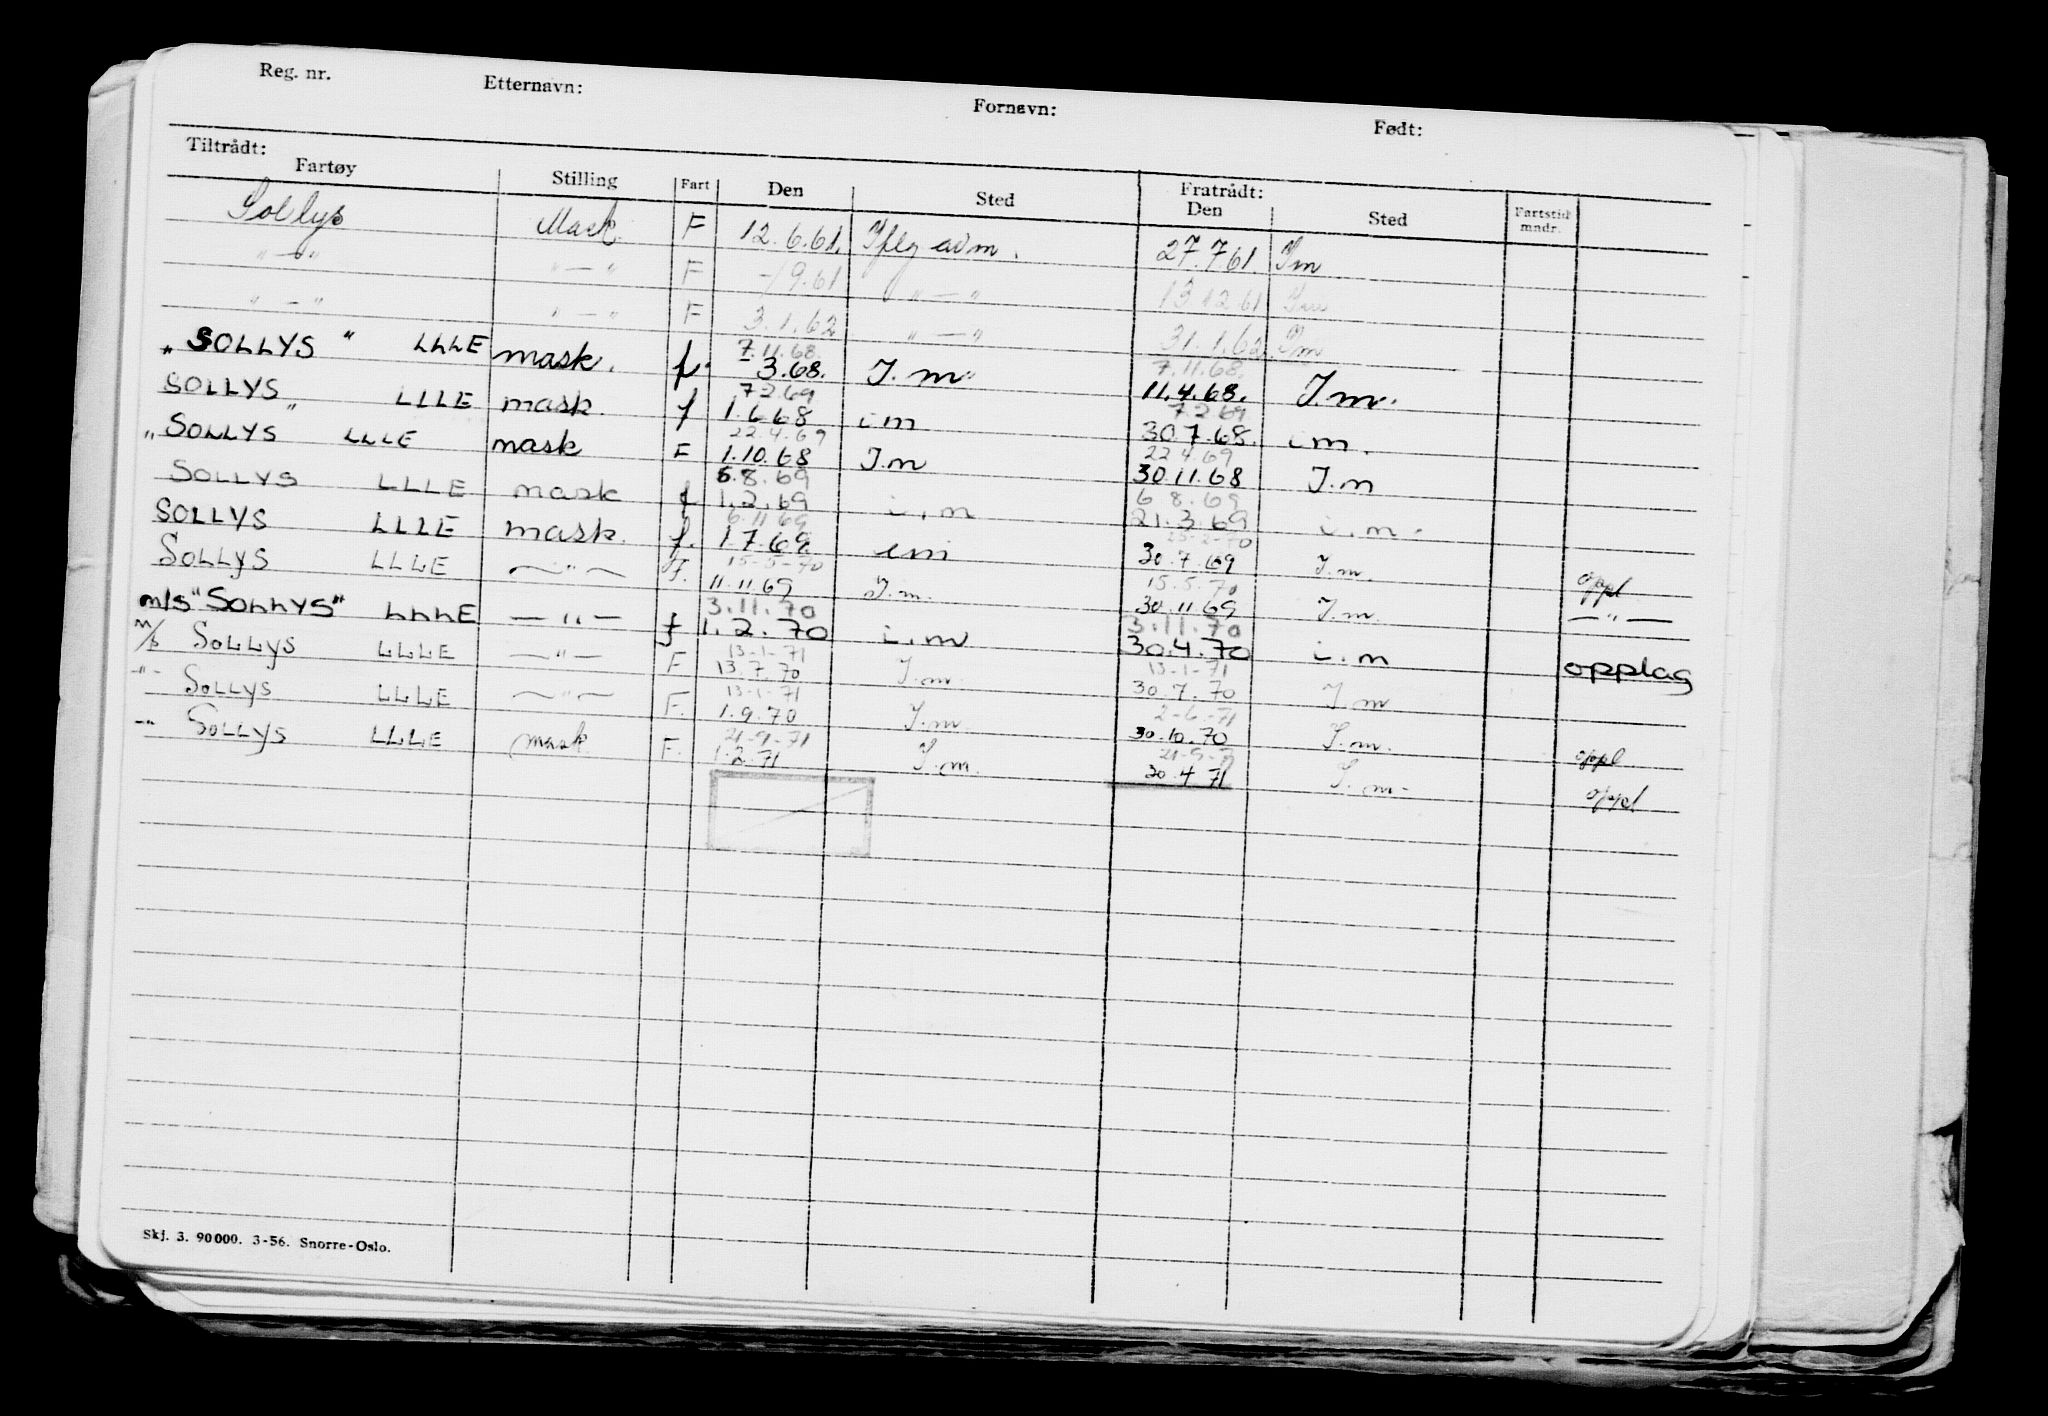 Reg. nr. Etternavn: Fornavn: Født:
Tiltrådt: Fratrådt:
Fartøy Stilling Fart Den Sted Den Sted Fartstid mndr.
Sollys Mask. F 12.6.61. Iflg adm. 27.7 61. Im
"—" "—" F -/9.61 "—" 13.12.61 Im
"—" "—" F 3.1.62 "—" 31.1.62. Im
7.11.68. 7.11.68.
"SOLLYS" LLLE mask. f. - 3.68. I.m. 11.4.68. I.m.
7 2.69 7 2 69
SOLLYS LLLE mask. f 1.6.68 i m 30.7.68. i m.
22.4.69 22 4.69
"SOLLYS" LLLE mask F 1.10.68 I.m 30.11.68 I.m
6.8.69 6 8.69
SOLLYS LLLE mask f 1.2.69 i.m 21.3.69 i.m.
6.11 69 25-2-70
SOLLYS LLLE mask. f. 1.7.69. im 30.7.69 I.m.
15-5-70 15.5.70
SOLLYS LLLE —"— F. 11.11.69 I.m. 30.11.69 I.m. oppl
3.11.70 3.11.70
m/s "SOLLYS" LLLE —"— f 1.2.70 i.m 30.4.70 i.m —"—
13-1-71 13-1-71
m/s SOLLYS LLLE —"— F 13.7.70 I.m. 30.7.70 I.m opplag
13-1-71 2-6-71
-"- SOLLYS LLLE —"— F. 1.9.70 I.m. 30.10.70 I.m.
21-9-71 21-9-71
-"- SOLLYS LLLE mask. F. 1.2.71 I.m. 30.4.71 I.m. oppl
oppl
Skj. 3. 90 000. 3-56. Snorre-Oslo.